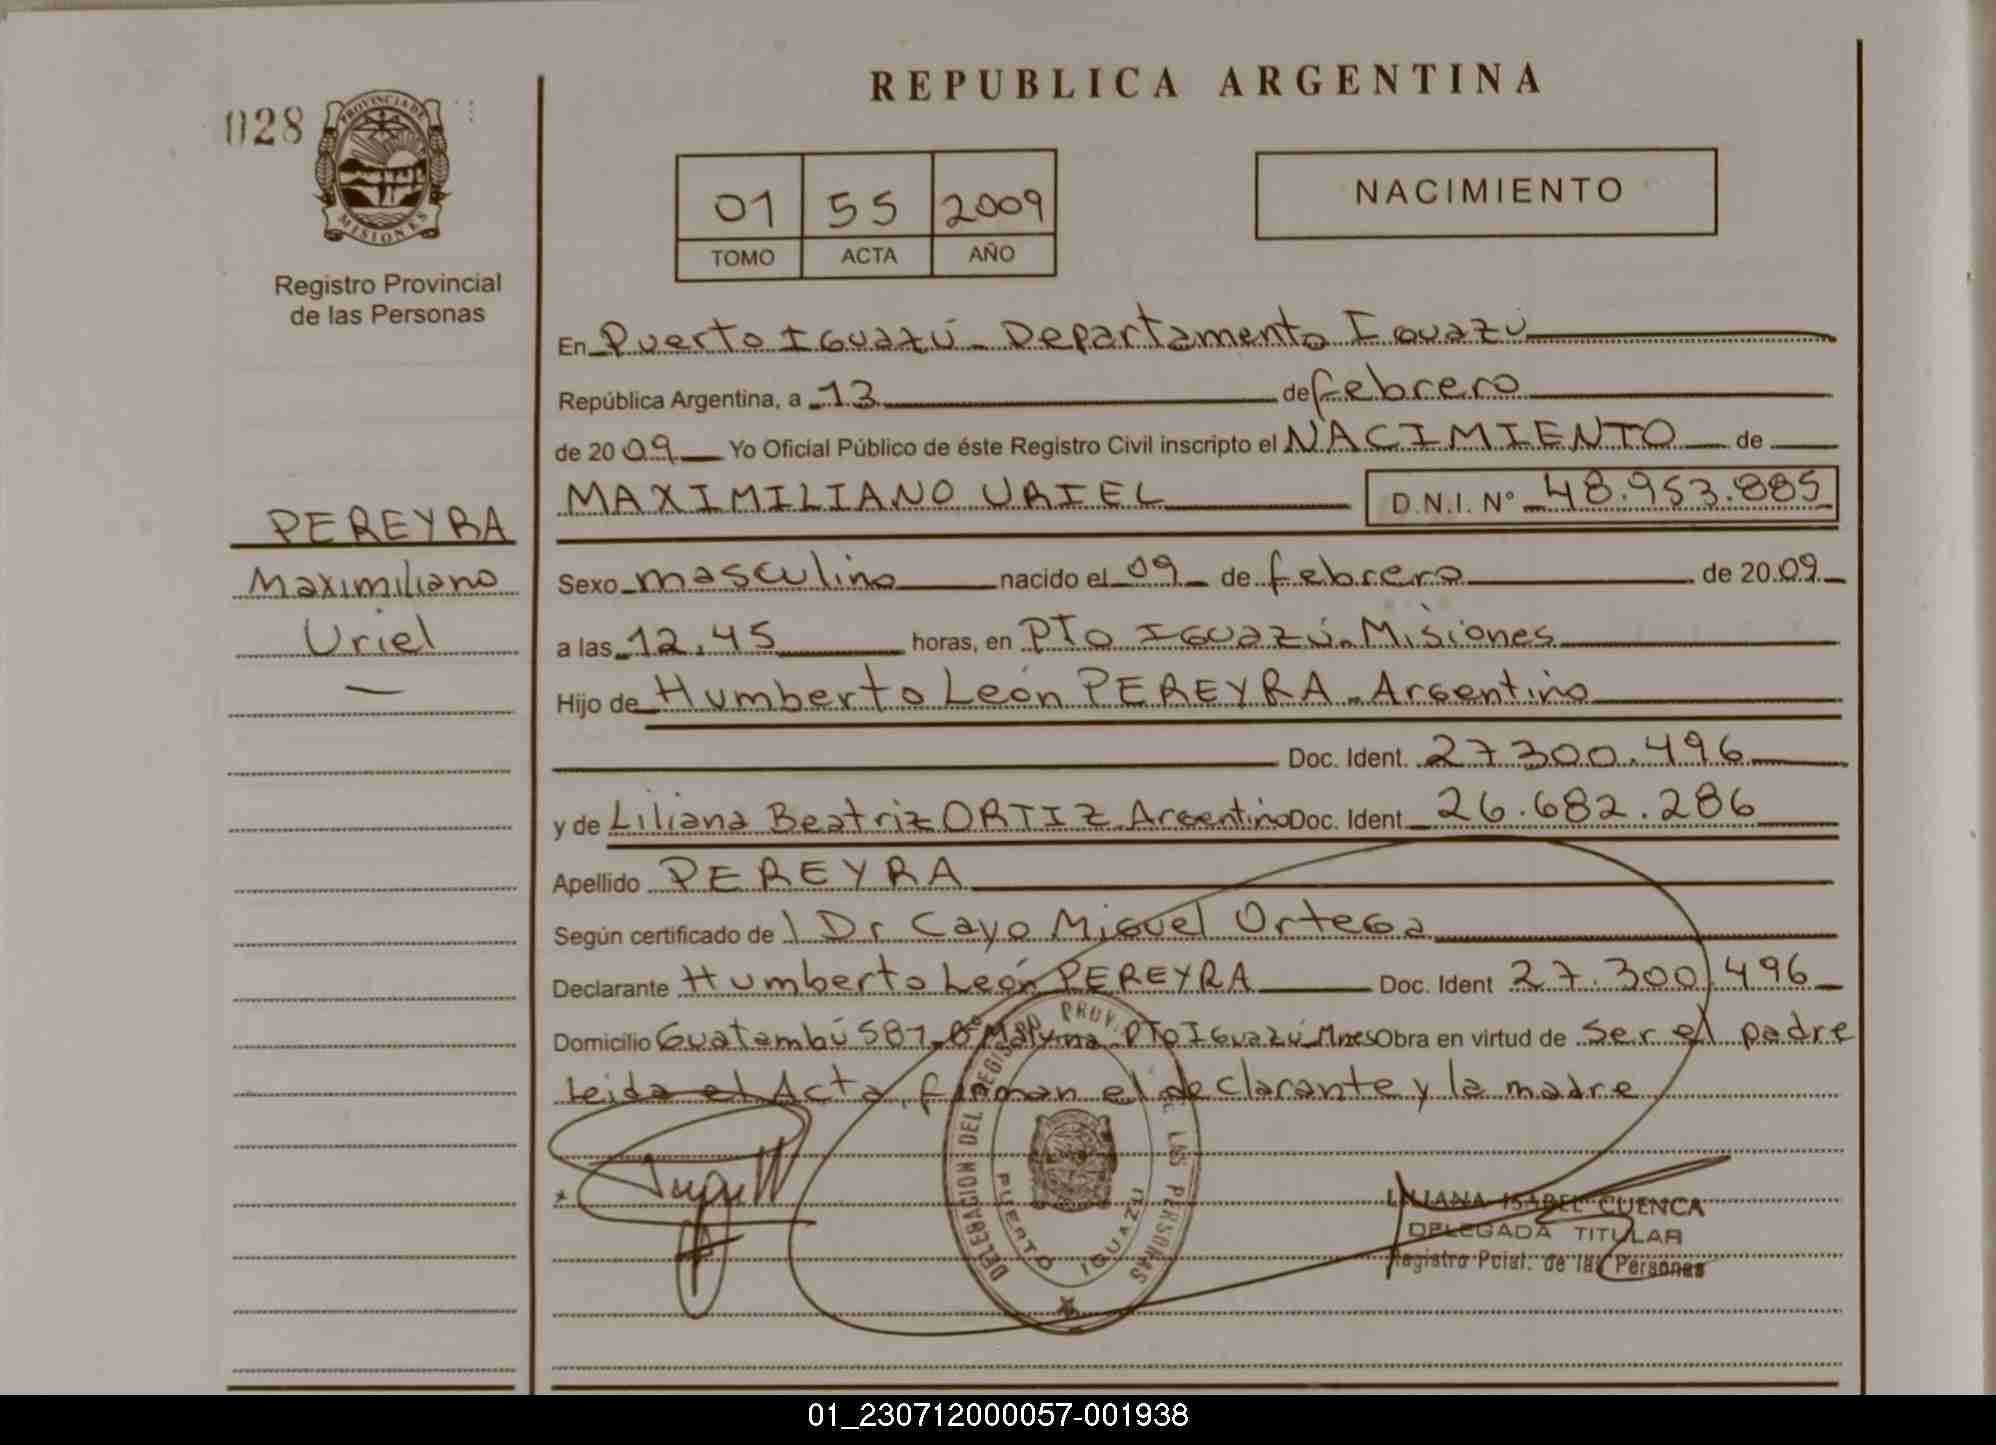 REPUBLICA ARGENTINA
028
PROVINCIA DE
MISIONES
Registro Provincial
de las Personas
01 55 2009
TOMO ACTA AÑO
NACIMIENTO
En Puerto Iguazú - Departamento Iguazú
República Argentina, a 13 de febrero
de 2009 Yo Oficial Público de éste Registro Civil inscripto el NACIMIENTO de
MAXIMILIANO URIEL D.N.I. N° 48.953.885
PEREYRA
Maximiliano
Uriel
Sexo masculino nacido el 09 de febrero de 2009
a las 12,45 horas, en Pto Iguazú - Misiones
Hijo de Humberto León PEREYRA - Argentino
Doc. Ident. 27300.496
y de Liliana Beatriz ORTIZ - Argentino Doc. Ident 26.682.286
Apellido PEREYRA
Según certificado de Dr Cayo Miguel Ortega
Declarante Humberto León PEREYRA Doc. Ident 27.300.496
Domicilio Guatambú 587 - Pto Iguazú - Mnes Obra en virtud de ser el padre
Leida el Acta, firman el declarante y la madre
DELEGACION DEL REGISTRO PROV. DE LAS PERSONAS
PUERTO IGUAZU
LILIANA ISABEL CUENCA
DELEGADA TITULAR
Registro Pcial. de las Personas
01_230712000057-001938